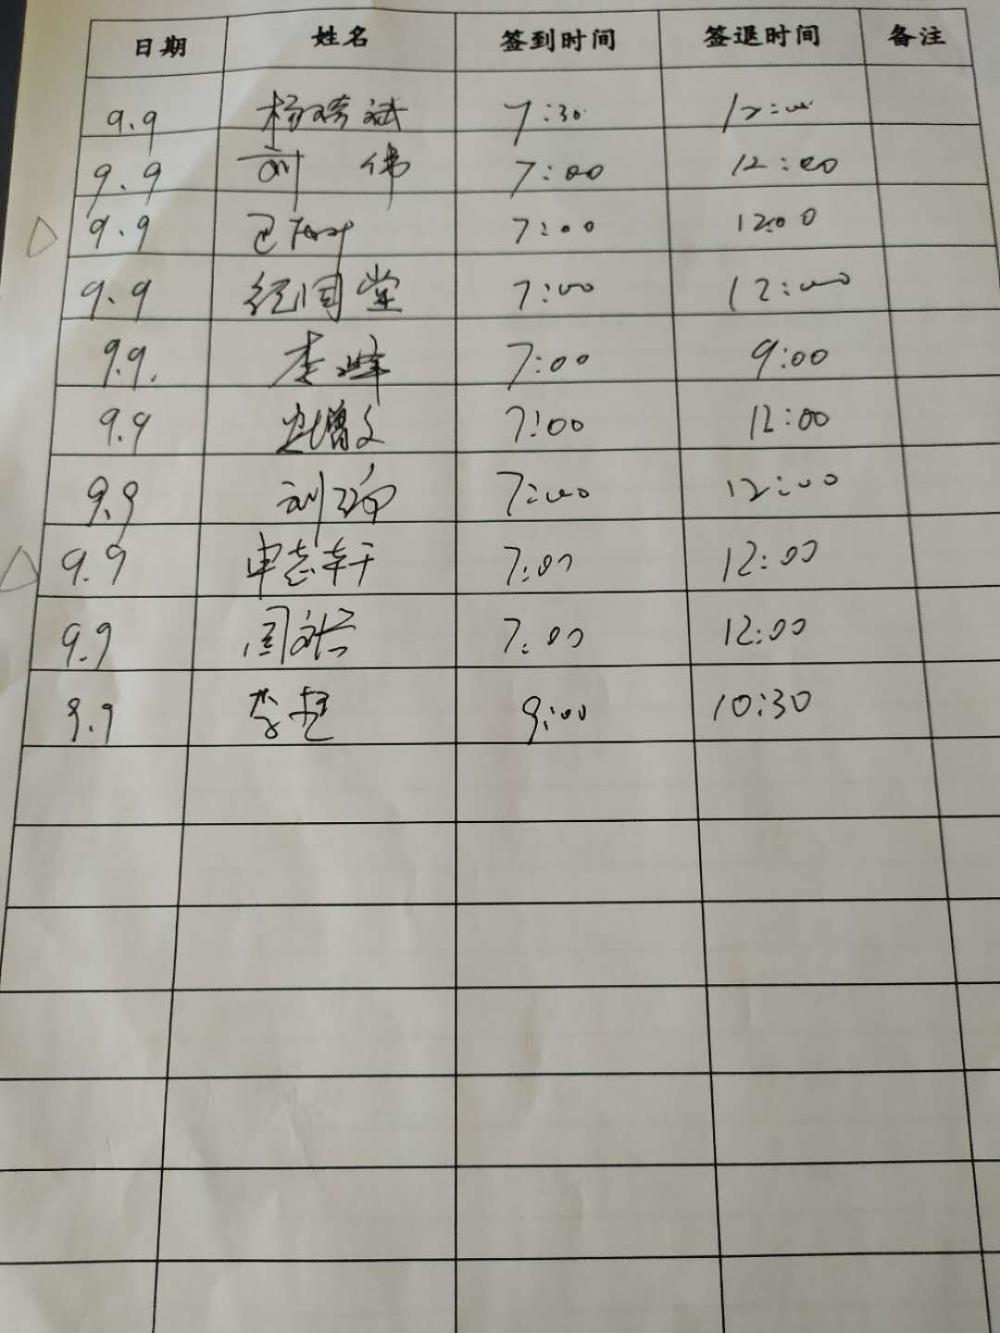 日期 姓名 签到时间 签退时间 备注
9.9 杨 斌 7:30 12:00
9.9 刘 伟 7:00 12:00
9.9 7:00 12:00
9.9 纪国堂 7:00 12:00
9.9. 李峰 7:00 9:00
9.9 增文 7:00 12:00
9.9 刘 7:00 12:00
9.9 申志轩 7:00 12:00
9.9 周 7:00 12:00
9.9 李 9:00 10:30